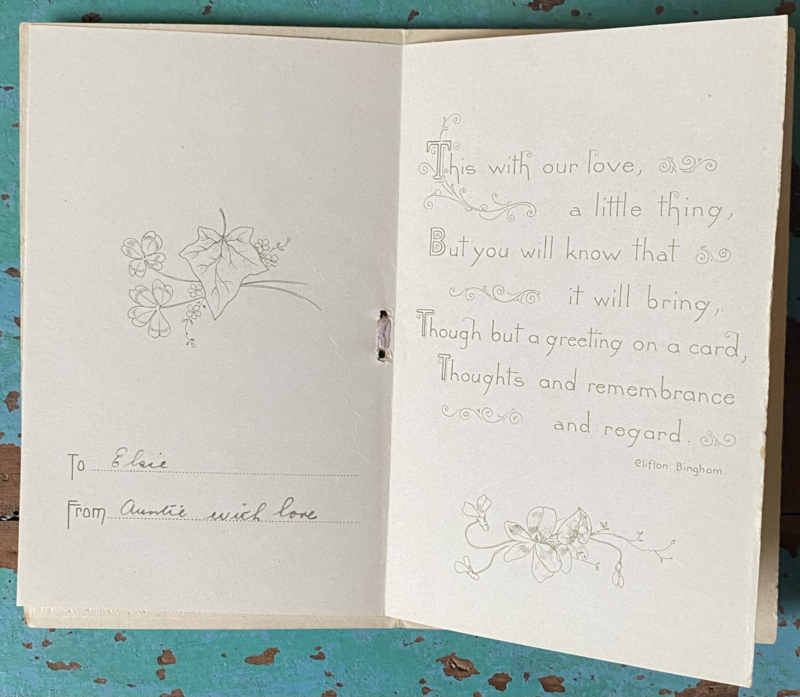 To Elsie
From Auntie with love
This with our love,
a little thing,
But you will know that
it will bring,
Though but a greeting on a card,
Thoughts and remembrance
and regard.
Clifton Bingham.